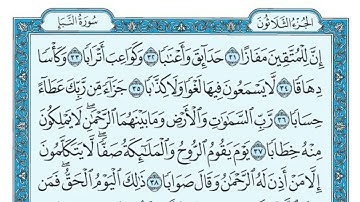 سُورَةُ النَّبَإِ الجُزْءُ الثَّلَاثُونَ
إِنَّ لِلْمُتَّقِينَ مَفَازًا ٣١ حَدَآئِقَ وَأَعْنَٰبًا ٣٢ وَكَوَاعِبَ أَتْرَابًا ٣٣ وَكَأْسًا
دِهَاقًا ٣٤ لَّا يَسْمَعُونَ فِيهَا لَغْوًا وَلَا كِذَّٰبًا ٣٥ جَزَآءً مِّن رَّبِّكَ عَطَآءً
حِسَابًا ٣٦ رَّبِّ ٱلسَّمَٰوَٰتِ وَٱلْأَرْضِ وَمَا بَيْنَهُمَا ٱلرَّحْمَٰنِ ۖ لَا يَمْلِكُونَ
مِنْهُ خِطَابًا ٣٧ يَوْمَ يَقُومُ ٱلرُّوحُ وَٱلْمَلَٰٓئِكَةُ صَفًّا ۖ لَّا يَتَكَلَّمُونَ
إِلَّا مَنْ أَذِنَ لَهُ ٱلرَّحْمَٰنُ وَقَالَ صَوَابًا ٣٨ ذَٰلِكَ ٱلْيَوْمُ ٱلْحَقُّ ۖ فَمَن